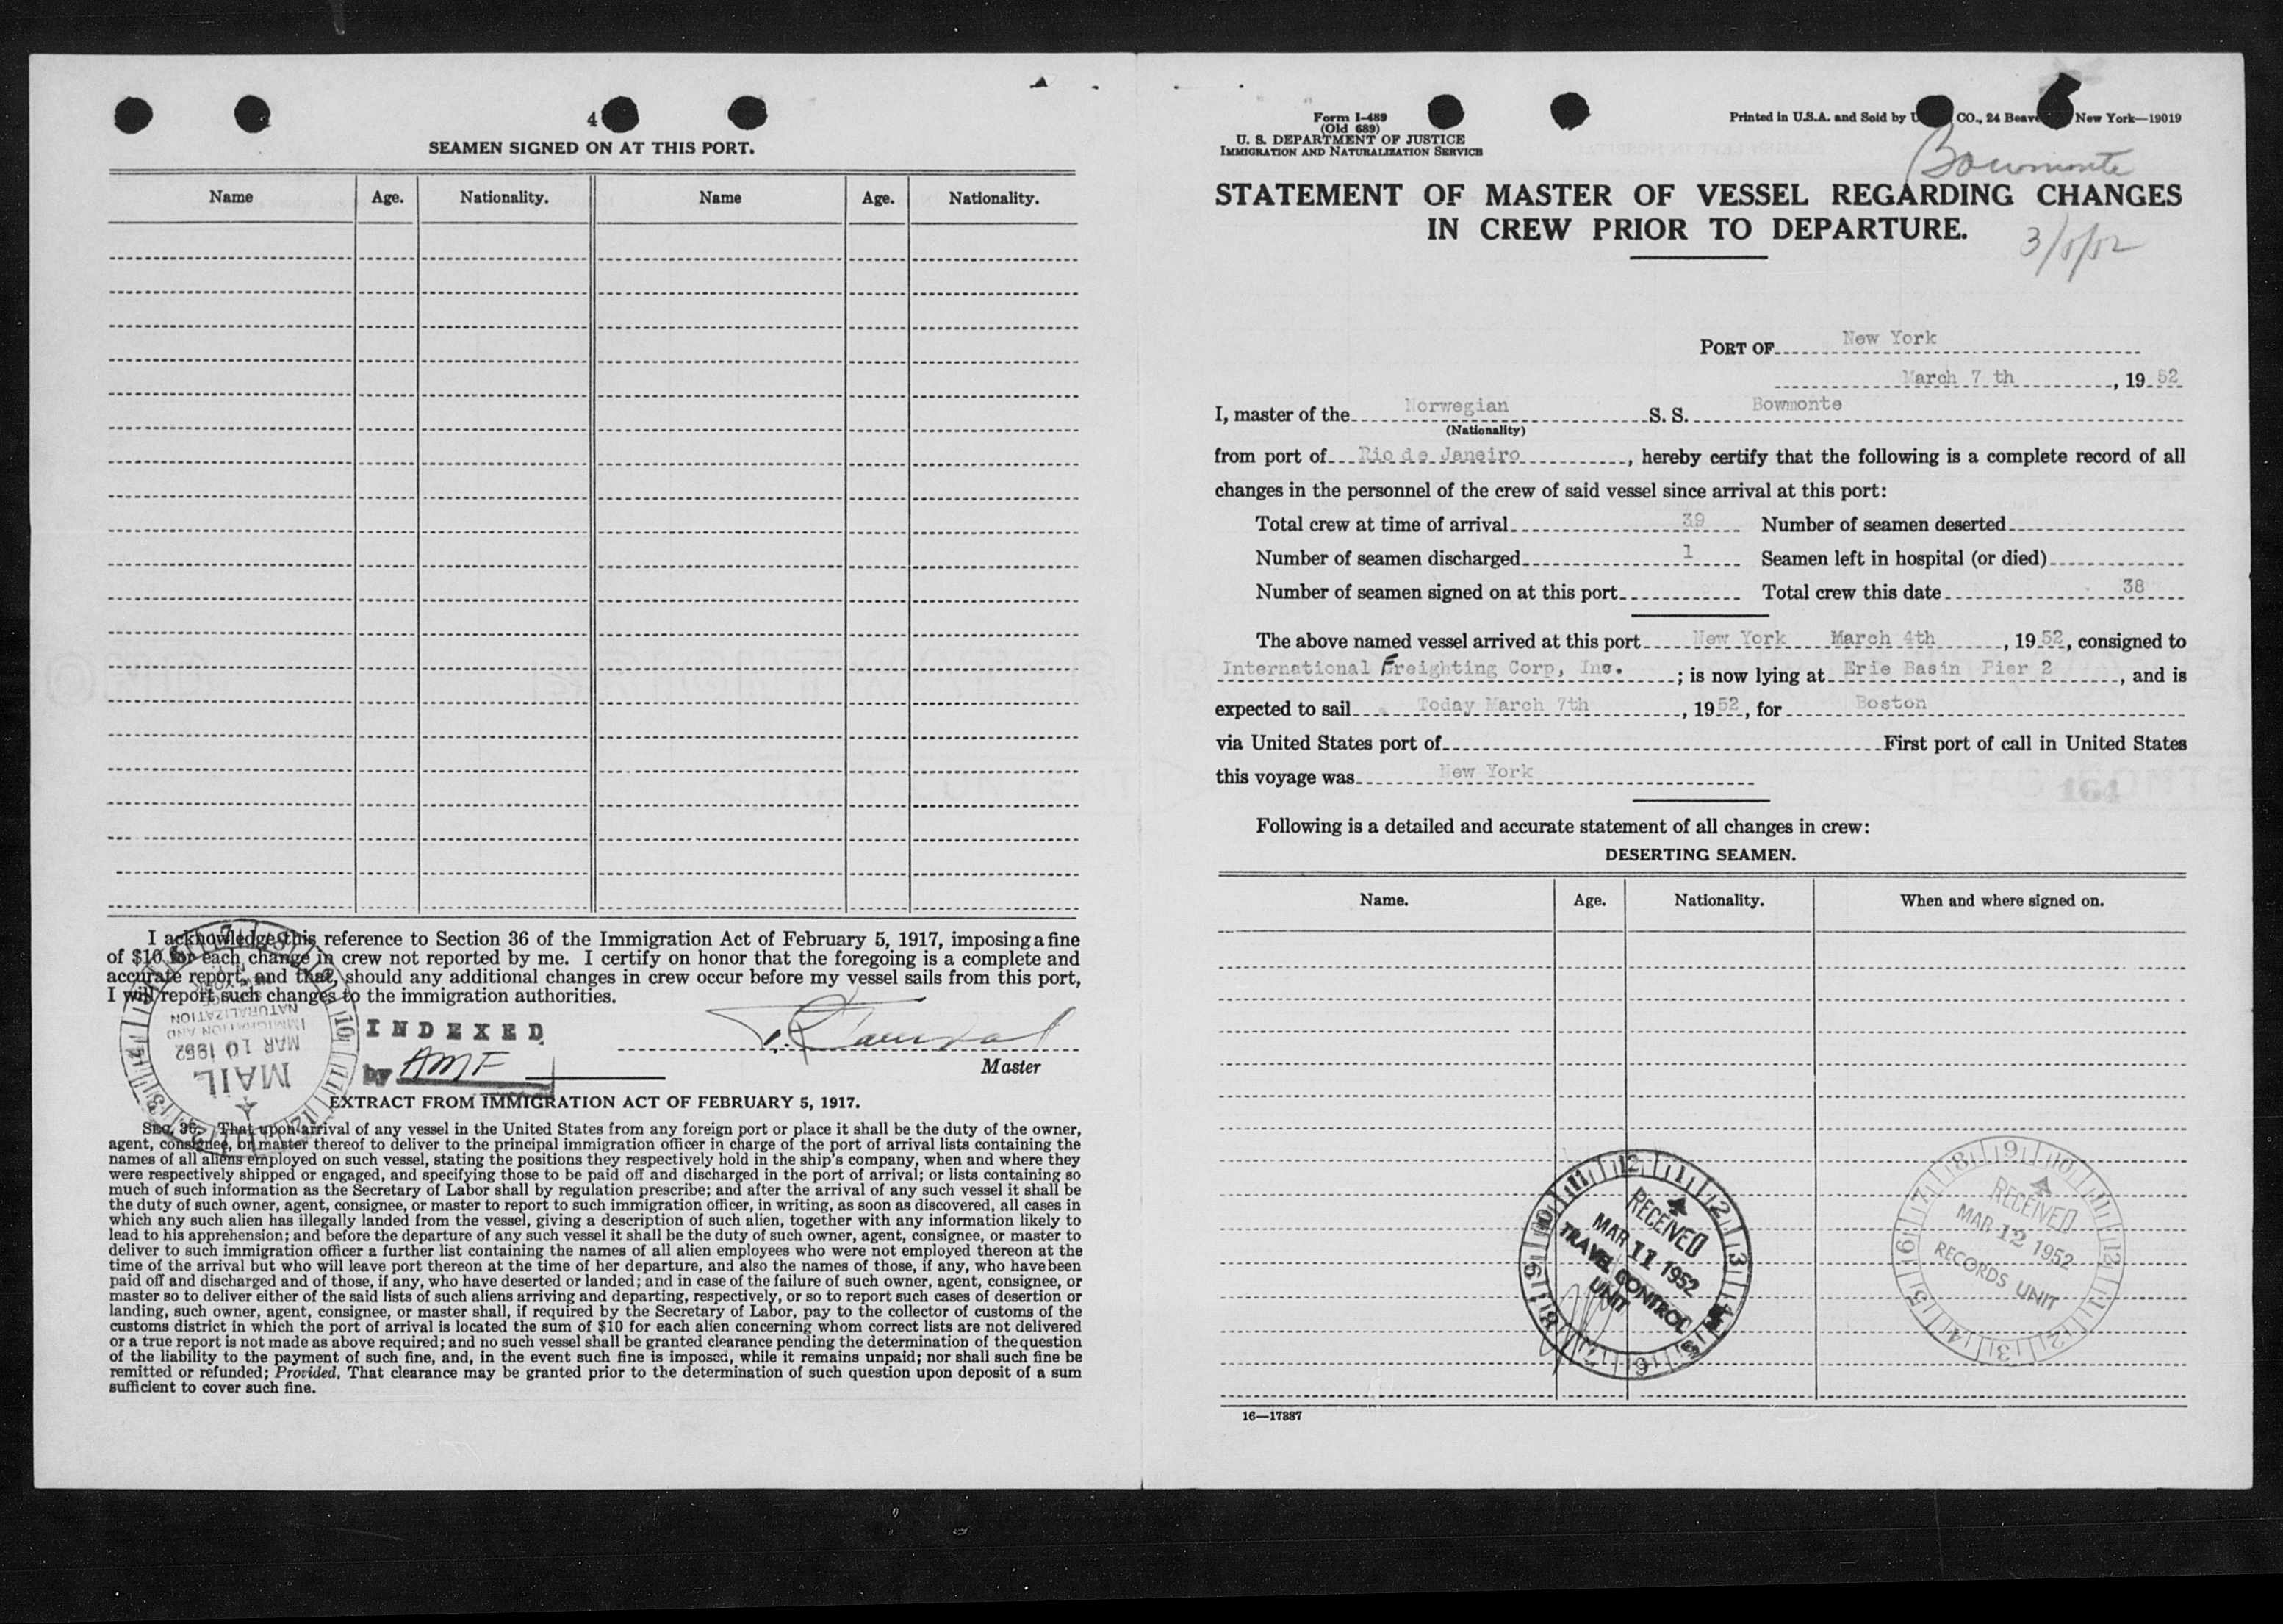 4
SEAMEN SIGNED ON AT THIS PORT.
Name Age. Nationality. Name Age. Nationality.
I acknowledge this reference to Section 36 of the Immigration Act of February 5, 1917, imposing a fine
of $10 for each change in crew not reported by me. I certify on honor that the foregoing is a complete and
accurate report, and that, should any additional changes in crew occur before my vessel sails from this port,
I will report such changes to the immigration authorities.
IMMIGRATION AND
NATURALIZATION
MAR 10 1952
MAIL
INDEXED
by AMF
Master
EXTRACT FROM IMMIGRATION ACT OF FEBRUARY 5, 1917.
SEC. 36. That upon arrival of any vessel in the United States from any foreign port or place it shall be the duty of the owner,
agent, consignee, or master thereof to deliver to the principal immigration officer in charge of the port of arrival lists containing the
names of all aliens employed on such vessel, stating the positions they respectively hold in the ship's company, when and where they
were respectively shipped or engaged, and specifying those to be paid off and discharged in the port of arrival; or lists containing so
much of such information as the Secretary of Labor shall by regulation prescribe; and after the arrival of any such vessel it shall be
the duty of such owner, agent, consignee, or master to report to such immigration officer, in writing, as soon as discovered, all cases in
which any such alien has illegally landed from the vessel, giving a description of such alien, together with any information likely to
lead to his apprehension; and before the departure of any such vessel it shall be the duty of such owner, agent, consignee, or master to
deliver to such immigration officer a further list containing the names of all alien employees who were not employed thereon at the
time of the arrival but who will leave port thereon at the time of her departure, and also the names of those, if any, who have been
paid off and discharged and of those, if any, who have deserted or landed; and in case of the failure of such owner, agent, consignee, or
master so to deliver either of the said lists of such aliens arriving and departing, respectively, or so to report such cases of desertion or
landing, such owner, agent, consignee, or master shall, if required by the Secretary of Labor, pay to the collector of customs of the
customs district in which the port of arrival is located the sum of $10 for each alien concerning whom correct lists are not delivered
or a true report is not made as above required; and no such vessel shall be granted clearance pending the determination of the question
of the liability to the payment of such fine, and, in the event such fine is imposed, while it remains unpaid; nor shall such fine be
remitted or refunded; Provided, That clearance may be granted prior to the determination of such question upon deposit of a sum
sufficient to cover such fine.
Form I-489
(Old 689)
U. S. DEPARTMENT OF JUSTICE
IMMIGRATION AND NATURALIZATION SERVICE
Printed in U.S.A. and Sold by CO., 24 New York—19019
Bowmonte
STATEMENT OF MASTER OF VESSEL REGARDING CHANGES
IN CREW PRIOR TO DEPARTURE.
PORT OF New York
March 7 th, 19 52
I, master of the Norwegian S. S. Bowmonte
(Nationality)
from port of Rio de Janeiro, hereby certify that the following is a complete record of all
changes in the personnel of the crew of said vessel since arrival at this port:
Total crew at time of arrival 39 Number of seamen deserted
Number of seamen discharged 1 Seamen left in hospital (or died)
Number of seamen signed on at this port Total crew this date 38
The above named vessel arrived at this port New York March 4th, 19 52, consigned to
International Freighting Corp, Inc.; is now lying at Erie Basin Pier 2, and is
expected to sail Today March 7th, 19 52, for Boston
via United States port of First port of call in United States
this voyage was New York
164
Following is a detailed and accurate statement of all changes in crew:
DESERTING SEAMEN.
Name. Age. Nationality. When and where signed on.
RECEIVED
MAR 11 1952
TRAVEL CONTROL
UNIT
RECEIVED
MAR 12 1952
RECORDS UNIT
16—17887